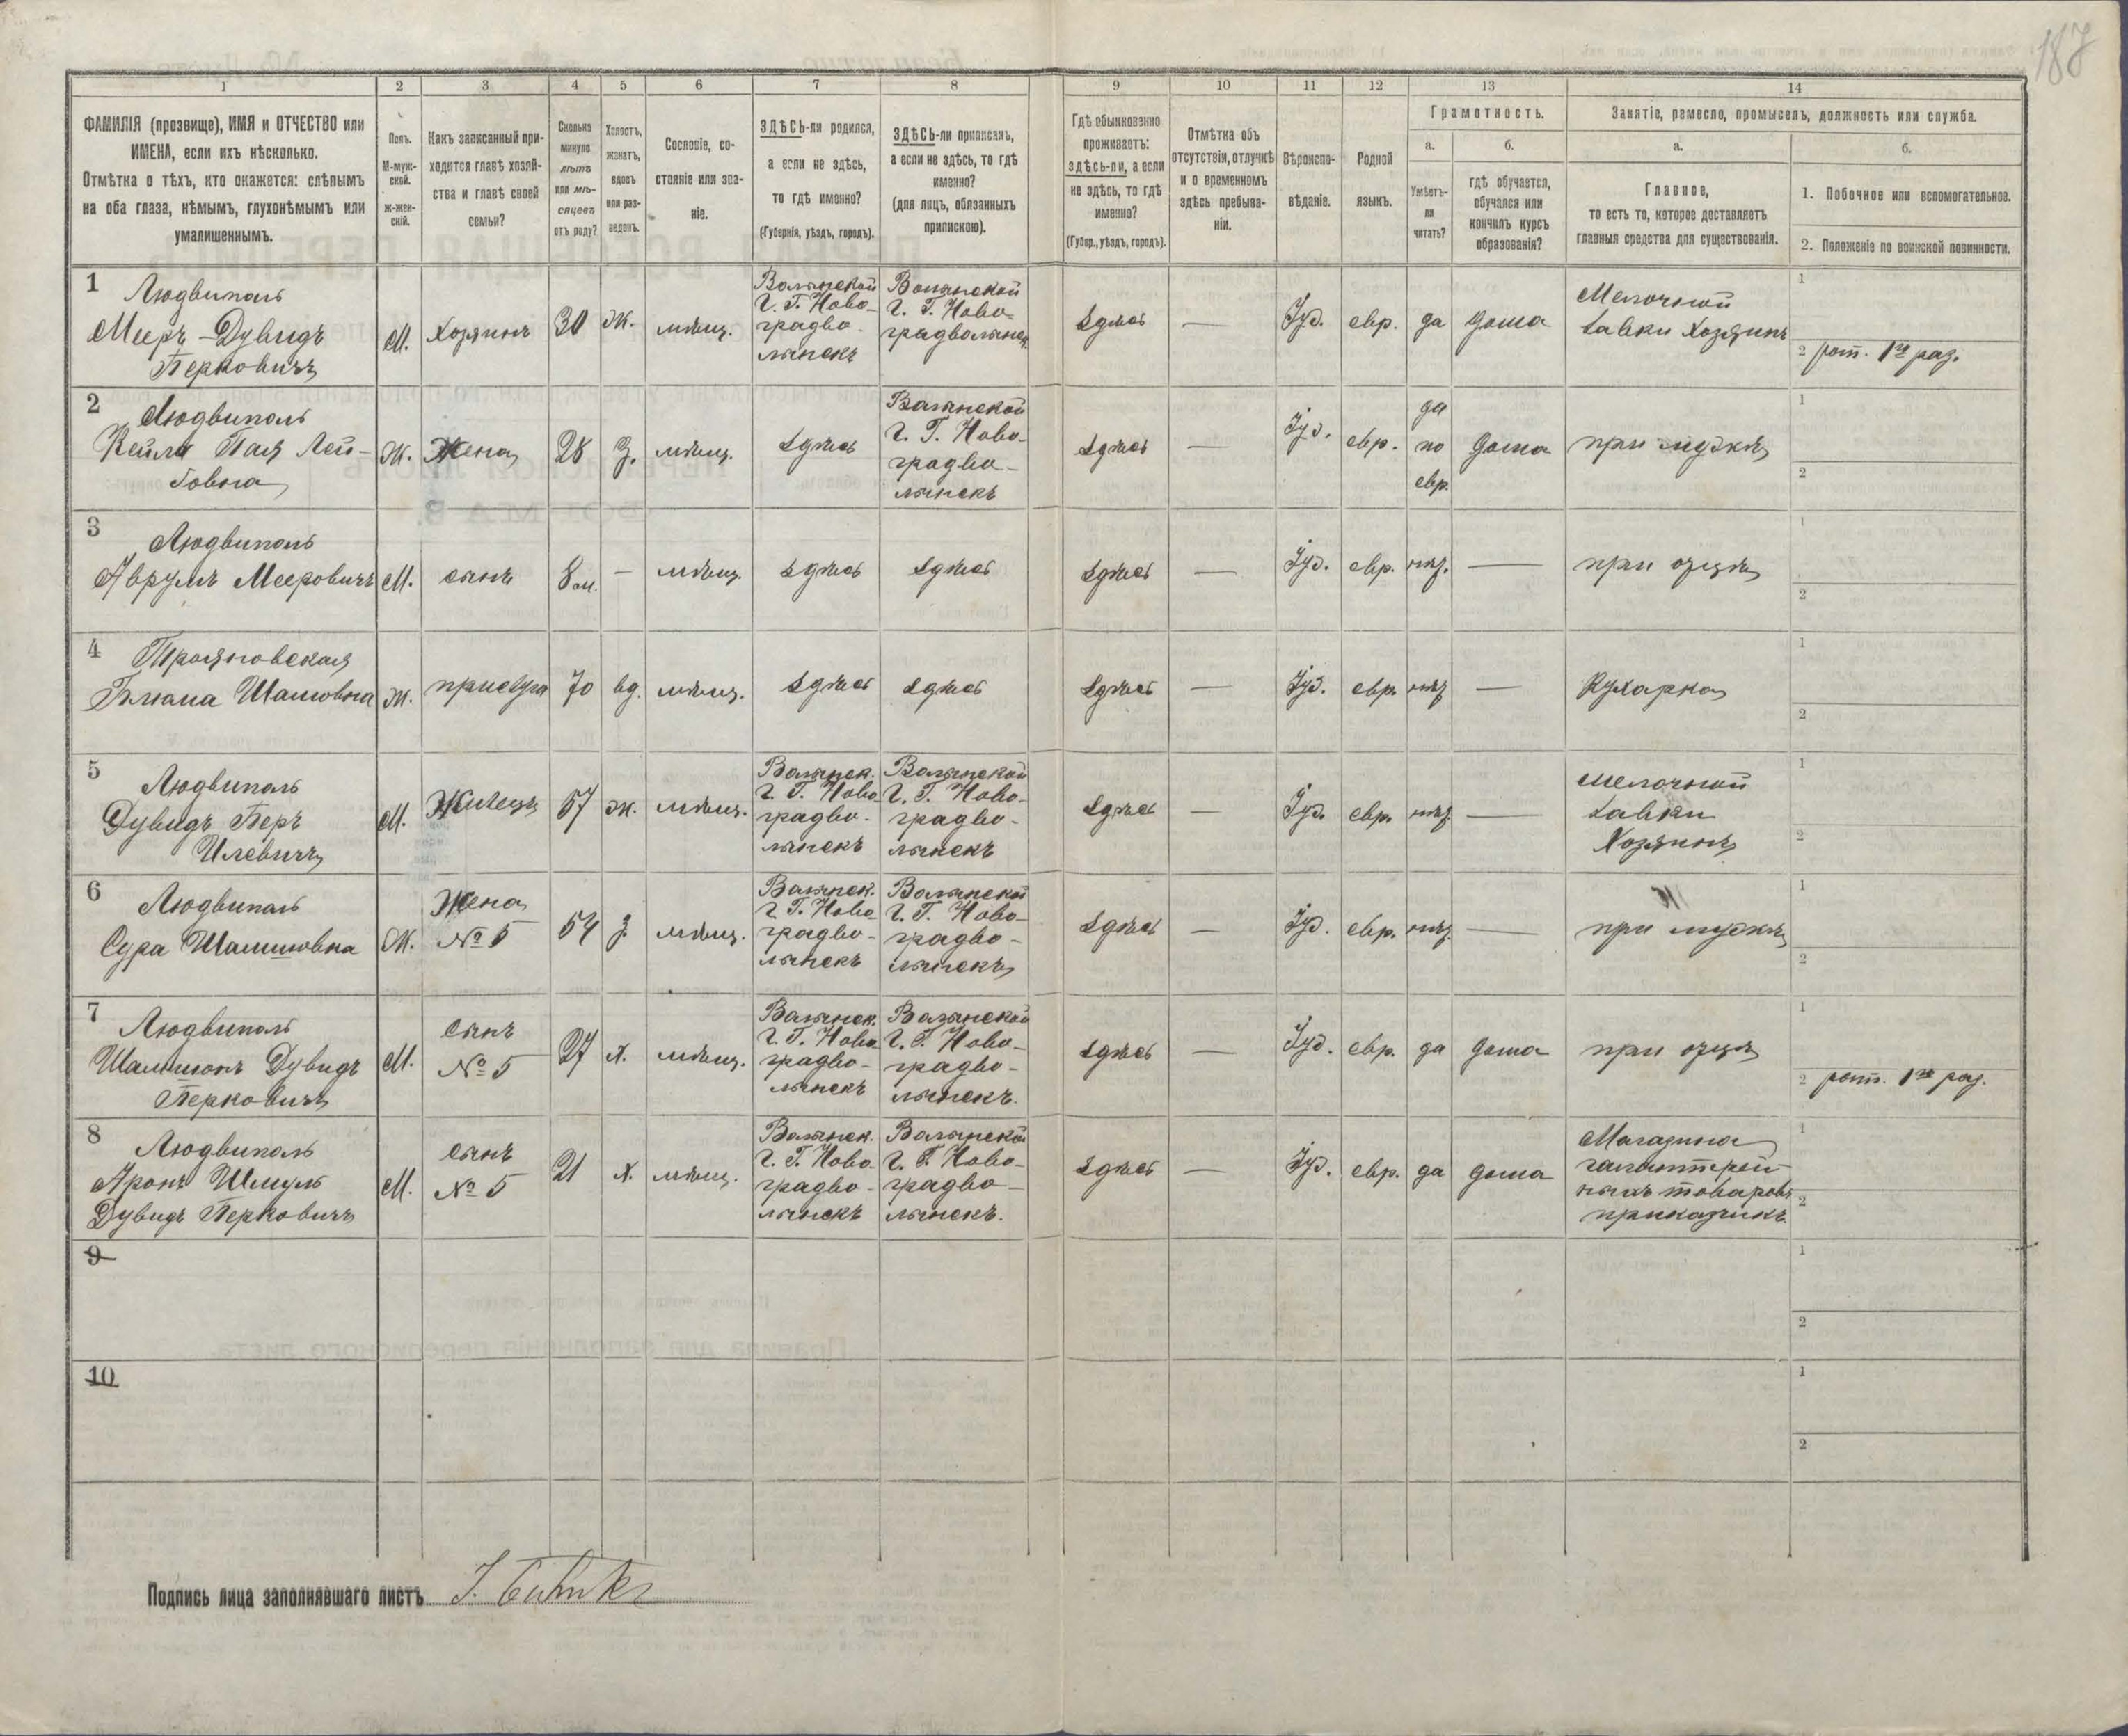 187
1 2 3 4 5 6 7 8 9 10 11 12 13 14
ФАМИЛІЯ (прозвище), ИМЯ и ОТЧЕСТВО или
ИМЕНА, если ихъ нѣсколько.
Отмѣтка о тѣхъ, кто окажется: слѣпымъ
на оба глаза, нѣмымъ, глухонѣмымъ или
умалишеннымъ.
Полъ.
М-муж-
ской.
ж-жен-
скій.
Какъ записанный при-
ходится главѣ хозяй-
ства и главѣ своей
семьи?
Сколько
минуло
лѣтъ
или мѣ-
сяцевъ
отъ роду?
Холостъ,
женатъ,
вдовъ
или раз-
веденъ.
Сословіе, со-
стояніе или зва-
ніе.
ЗДѢСЬ-ли родился,
а если не здѣсь,
то гдѣ именно?
(Губернія, уѣздъ, городъ).
ЗДѢСЬ-ли приписанъ,
а если не здѣсь, то гдѣ
именно?
(для лицъ, обязанныхъ
припискою).
Гдѣ обыкновенно
проживаетъ:
здѣсь-ли, а если
не здѣсь, то гдѣ
именно?
(Губер., уѣздъ, городъ).
Отмѣтка объ
отсутствіи, отлучкѣ
и о временномъ
здѣсь пребыва-
ніи.
Вѣроиспо-
вѣданіе.
Родной
языкъ.
Грамотность.
а.
Умѣетъ-
ли
читать?
б.
гдѣ обучается,
обучался или
кончилъ курсъ
образованія?
Занятіе, ремесло, промыселъ, должность или служба.
а.
Главное,
то есть то, которое доставляетъ
главныя средства для существованія.
б.
1. Побочное или вспомогательное.
2. Положеніе по воинской повинности.
1
Людвиполь
Мееръ-Дувидъ
Берковичъ
М.
Хозяинъ
30
Ж.
мѣщ.
Волынской
Г. Г. Ново-
градво-
лынскъ
Волынской
Г. Г. Ново-
градволынск.
Здѣсь
—
Іуд.
евр.
да
дома
Мелочной
Лавки Хозяинъ
1
2 рат. 1го раз.
2
Людвиполь
Кейла Пая Лей-
бовна
Ж.
Жена
28
З.
мѣщ.
Здѣсь
Волынской
Г. Г. Ново-
градво-
лынскъ
Здѣсь
—
Іуд.
евр.
да
по
евр.
дома
при мужѣ
1
2
3
Людвиполь
Аврумъ Мееровичъ
М.
сынъ
8 м.
—
мѣщ.
Здѣсь
Здѣсь
Здѣсь
—
Іуд.
евр.
нѣт.
—
при отцѣ
1
2
4
Трояновская
Блюма Шаповна
Ж.
прислуга
70
вд.
мѣщ.
Здѣсь
Здѣсь
Здѣсь
—
Іуд.
евр.
нѣт
—
Кухарка
1
2
5
Людвиполь
Дувидъ Беръ
Илевичъ
М.
Жилецъ
57
Ж.
мѣщ.
Волынск.
Г. Г. Ново
градво-
лынскъ
Волынской
Г. Г. Ново-
градво-
лынскъ
Здѣсь
—
Іуд.
евр.
нѣт.
—
мелочной
Лавки
Хозяинъ
1
2
6
Людвиполь
Сура Шлиомовна
Ж.
Жена
№ 5
54
З.
мѣщ.
Волынск.
Г. Г. Ново-
градво-
лынскъ
Волынской
Г. Г. Ново-
градво-
лынскъ
Здѣсь
—
Іуд.
евр.
нѣт.
—
при мужѣ
1
2
7
Людвиполь
Дувидъ
Берковичъ
М.
Сынъ
№ 5
27
Х.
мѣщ.
Волынск.
Г. Г. Ново
градво-
лынскъ
Волынской
Г. Г. Ново-
градво-
лынскъ.
Здѣсь
—
Іуд.
евр.
да
дома
при отцѣ
1
2 рат. 1го раз.
8
Людвиполь
Аронъ Шмуль
Дувидъ Берковичъ
М.
Сынъ
№ 5
21
Х.
мѣщ.
Волынск.
Г. Г. Ново-
градво-
лынскъ
Волынской
Г. Г. Ново-
градво-
лынскъ.
Здѣсь
—
Іуд.
евр.
да
дома
Магазина
галантерей
ныхъ товаровъ
приказчикъ
1
2
9
1
2
10
1
2
Подпись лица заполнявшаго листъ